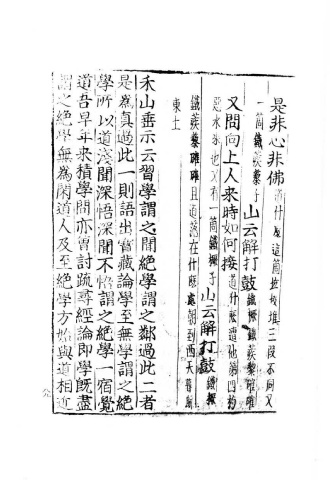 是非心非佛
一箇鐵蒺藜子山云解打鼓鐵橛鐵蒺藜確確
又問向上人來時如何接道什麼遭他第四杓
惡水來也又有一箇鐵橛子山云解打鼓鐵橛
鐵蒺藜確確且道落在什麼處朝到西天暮歸
東土
禾山垂示云習學謂之聞絕學謂之鄰過此二者
是為真過此一則語出寶藏論學至無學謂之絕
學所以道淺聞深悟深聞不悟謂之絕學一宿覺
道吾早年來積學問亦曾討疏尋經論即學既盡
謂之絕學無為閑道人及至絕學方始與道相近